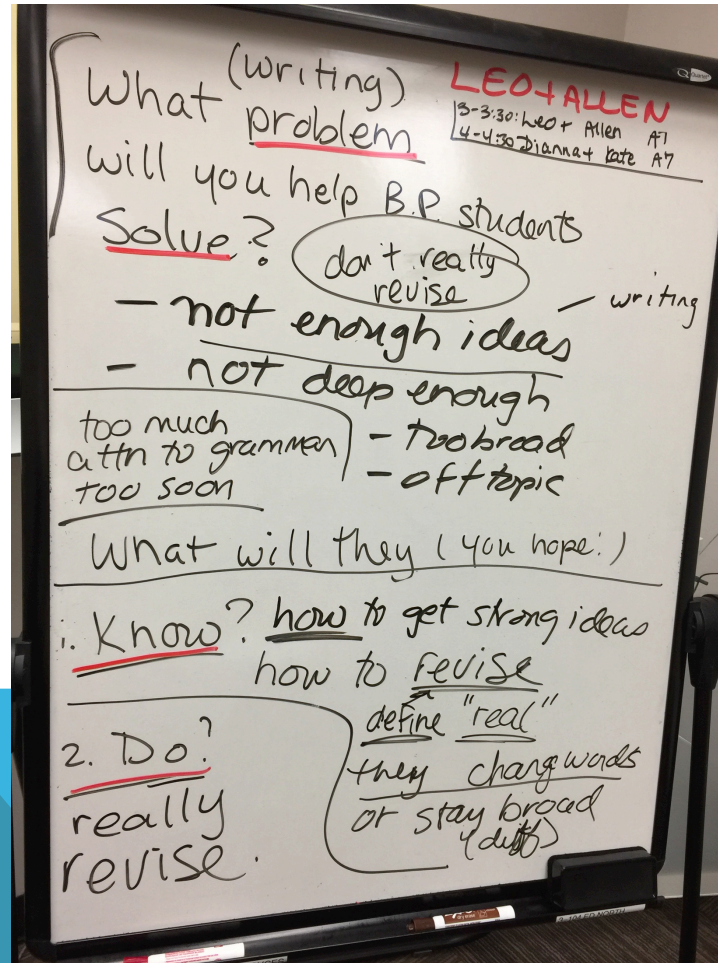 (writing)
What problem
will you help B.P. students
Solve?
LEO + ALLEN
3-3:30: Leo + Allen A7
4-4:30 Dianna + Kate A7
don't really
revise
- not enough ideas
- writing
- not deep enough
too much
attn to grammer
too soon
- too broad
- off topic
What will they (you hope!)
1. Know? how to get strong ideas
how to revise
define "real"
they change words
or stay broad
2. Do?
really
revise.